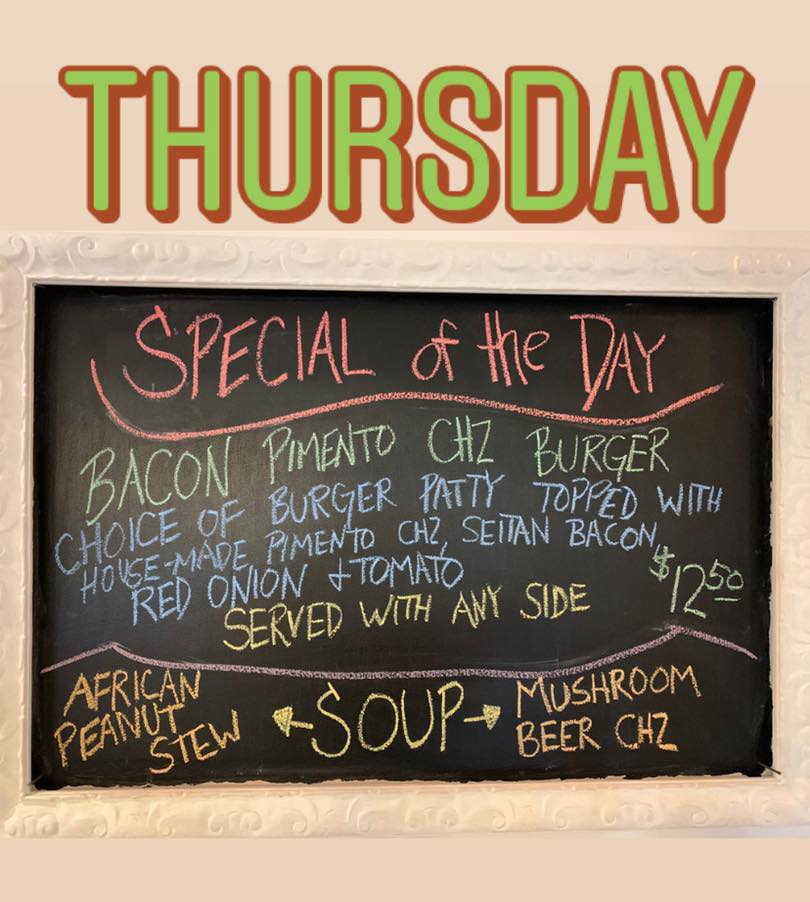 THURSDAY
SPECIAL of the DAY
BACON PIMENTO CHZ BURGER
CHOICE OF BURGER PATTY TOPPED WITH
HOUSE-MADE PIMENTO CHZ, SEITAN BACON,
RED ONION + TOMATO
$12.50
SERVED WITH ANY SIDE
AFRICAN
PEANUT
STEW
← SOUP →
MUSHROOM
BEER CHZ